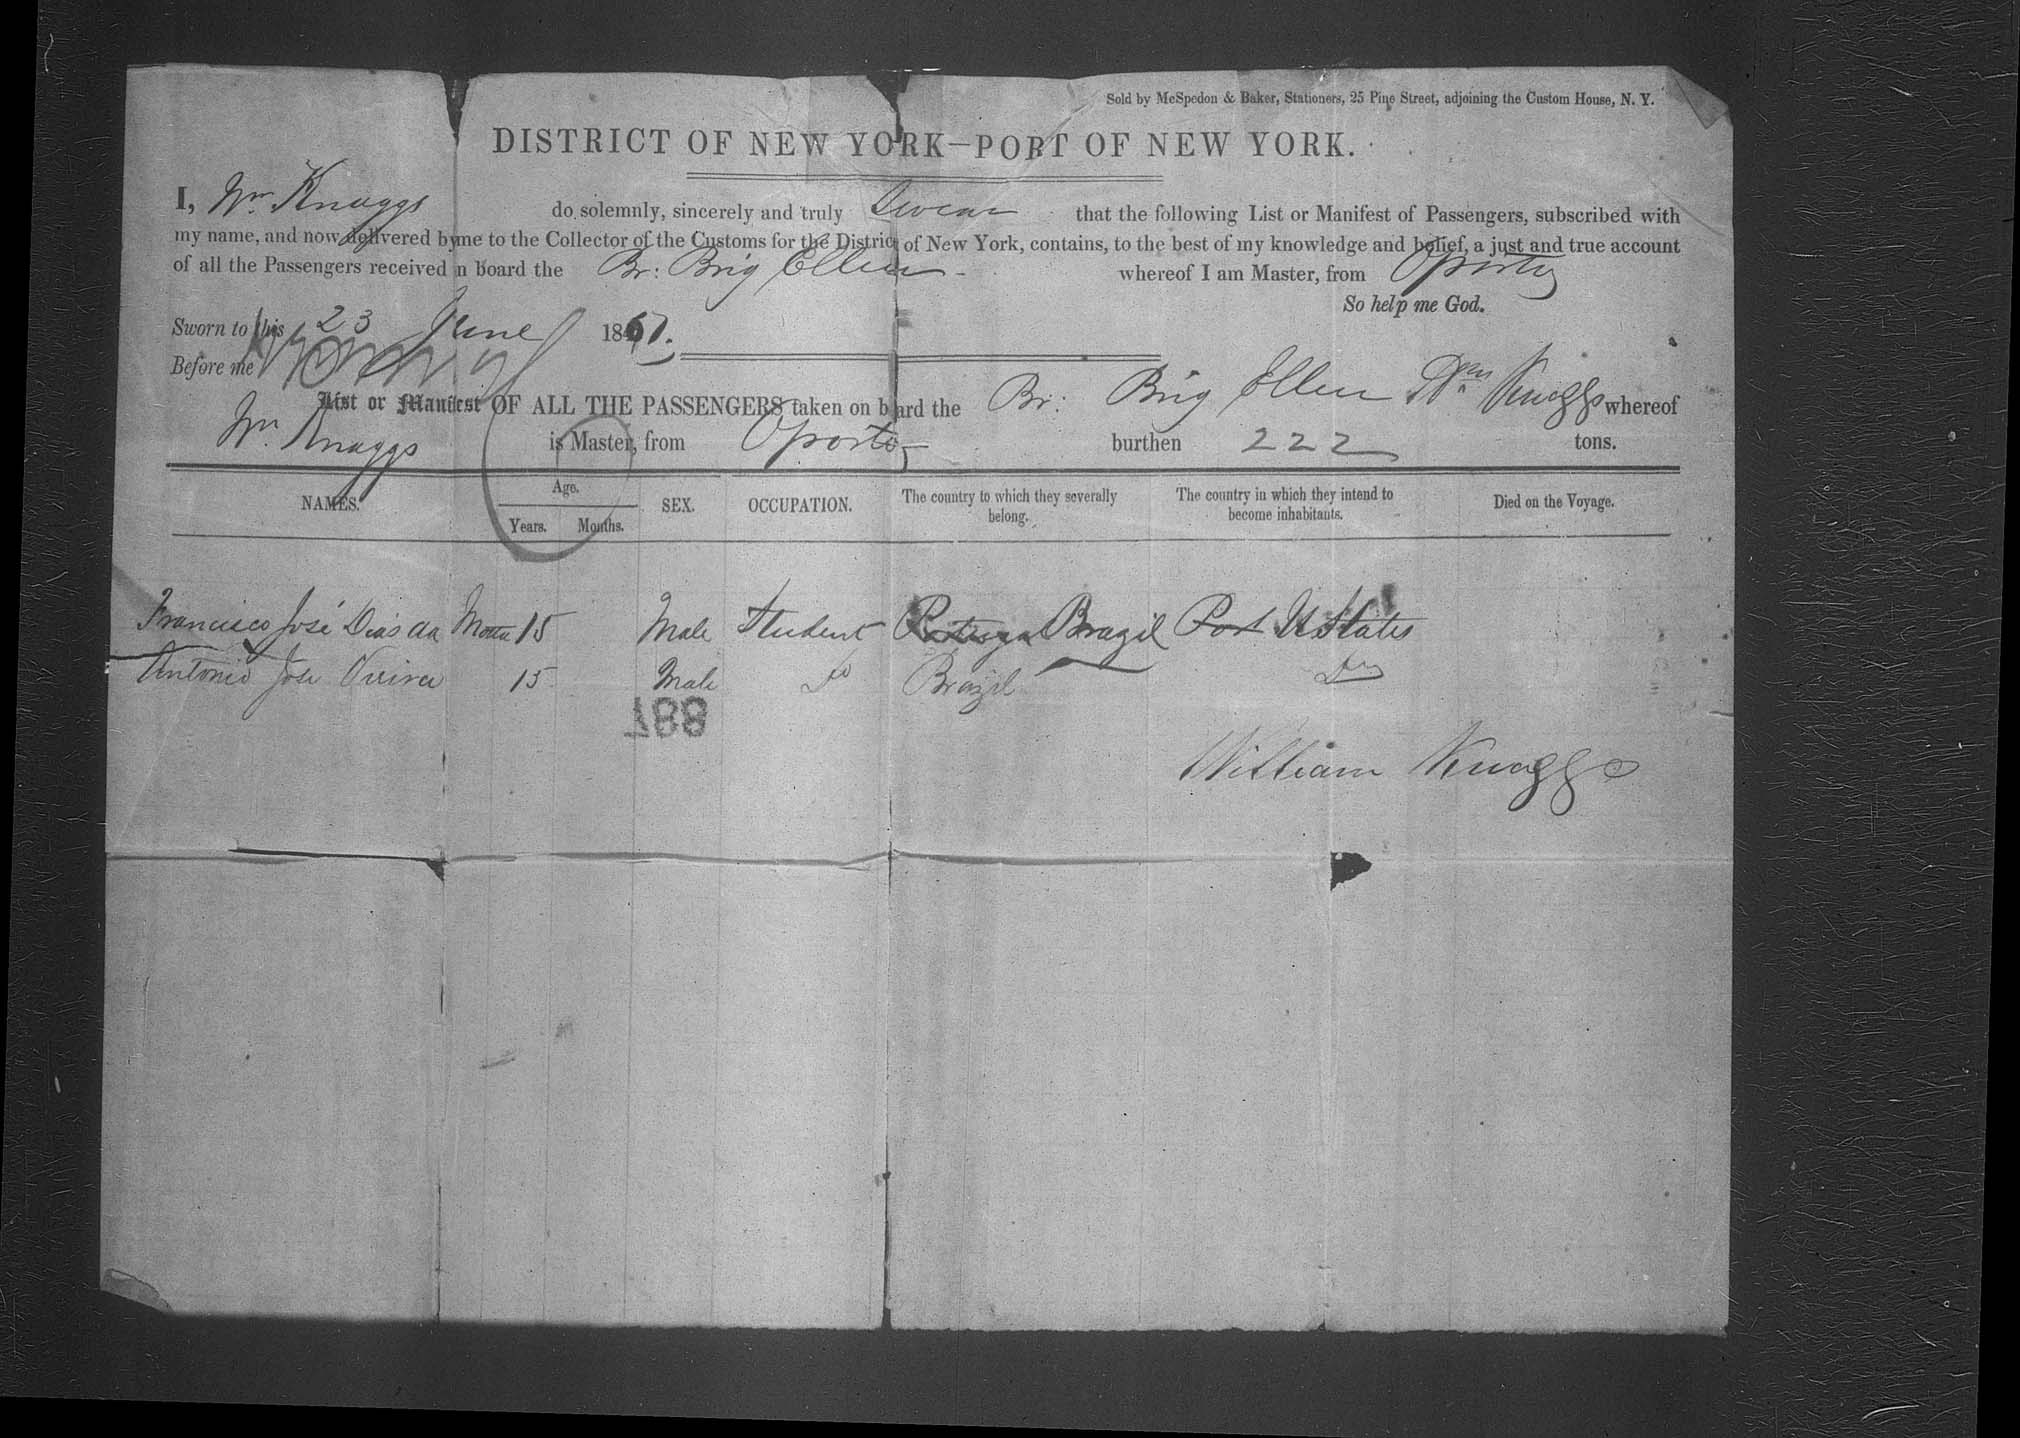 Sold by McSpedon & Baker, Stationers, 25 Pine Street, adjoining the Custom House, N. Y.
DISTRICT OF NEW YORK—PORT OF NEW YORK.
I, Wm Knaggs do solemnly, sincerely and truly Swear that the following List or Manifest of Passengers, subscribed with
my name, and now delivered by me to the Collector of the Customs for the District of New York, contains, to the best of my knowledge and belief, a just and true account
of all the Passengers received on board the Br: Brig Ellen whereof I am Master, from Oporto
So help me God.
Sworn to this 23 June 1851.
Before me
List or Manifest OF ALL THE PASSENGERS taken on board the Br: Brig Ellen Wm Knaggs whereof
Wm Knaggs is Master, from Oporto burthen 222 tons.
NAMES. Age. Years. Months. SEX. OCCUPATION. The country to which they severally belong. The country in which they intend to become inhabitants. Died on the Voyage.
Francisco José Dias da Motta 15 Male Student Portugal Brazil Port U States
Antonio Jose Vieira 15 Male Do Brazil Do
788
William Knaggs